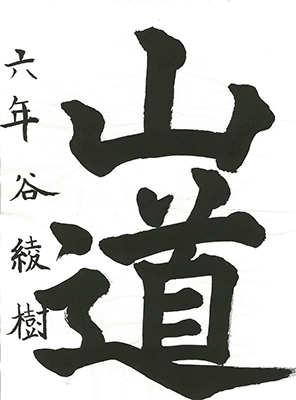 山道
六年 谷綾樹